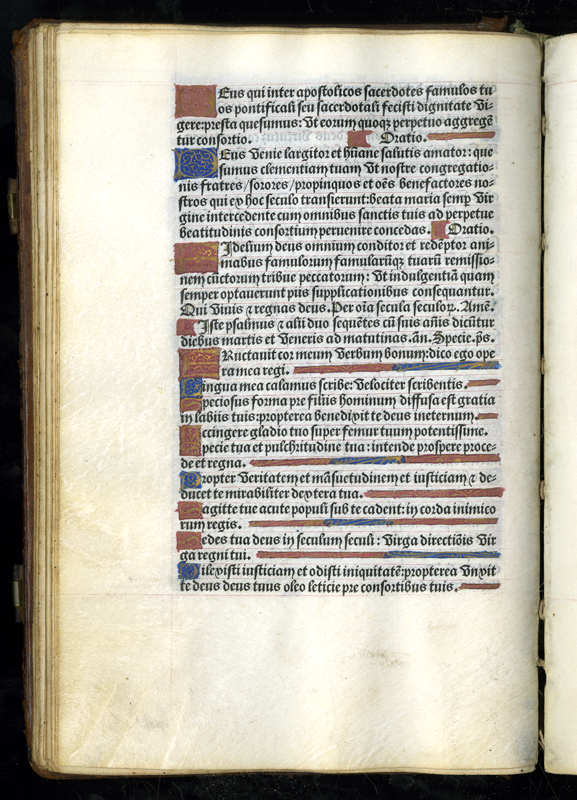 Eus qui inter apostolicos sacerdotes famulos tu
os pontificali seu sacerdotali fecisti dignitate Vi-
gere: presta quesumus: Vt eorum quoqꝫ perpetuo aggregẽ
tur consortio. Oratio.
DEus Venie largitor et hũane salutis amator: que
sumus clementiam tuam Vt nostre congregatio-
nis fratres/sorores/propinquos et oẽs benefactores no-
stros qui ex hoc seculo transierunt: beata maria semꝑ Vir
gine intercedente cum omnibus sanctis tuis ad perpetue
beatitudinis consortium peruenire concedas. Oratio.
Idelium deus omnium conditor et redẽptor ani-
mabus famulorum famularũqꝫ tuarũ remissio-
nem cũctorum tribue peccatorum: Vt indulgentiã quam
semper optauerunt piis supplicationibus consequantur.
Qui Viuis ⁊ regnas deus. Per oĩa secula seculoꝝ. Amẽ.
Iste psalmus ⁊ alii duo sequẽtes cũ suis añis dicũtur
diebus martis et Veneris ad matutinas. añ. Specie. ps.
ERuctauit cor meum Verbum bonum: dico ego ope
ra mea regi.
Lingua mea calamus scribe: Velociter scribentis.
Speciosus forma pre filiis hominum diffusa est gratia
in labiis tuis: propterea benedixit te deus ineternum.
Accingere gladio tuo super femur tuum potentissime.
Specie tua et pulchritudine tua: intende prospere proce-
de et regna.
Propter Veritatem et mãsuetudinem et iusticiam ⁊ de-
ducet te mirabiliter dextera tua.
Sagitte tue acute populi sub te cadent: in corda inimico
rum regis.
Sedes tua deus in seculum seculi: Virga directiõis Vir
ga regni tui.
Dilexisti iusticiam et odisti iniquitatẽ: propterea Vnxit
te deus deus tuus oleo leticie pre consortibus tuis.